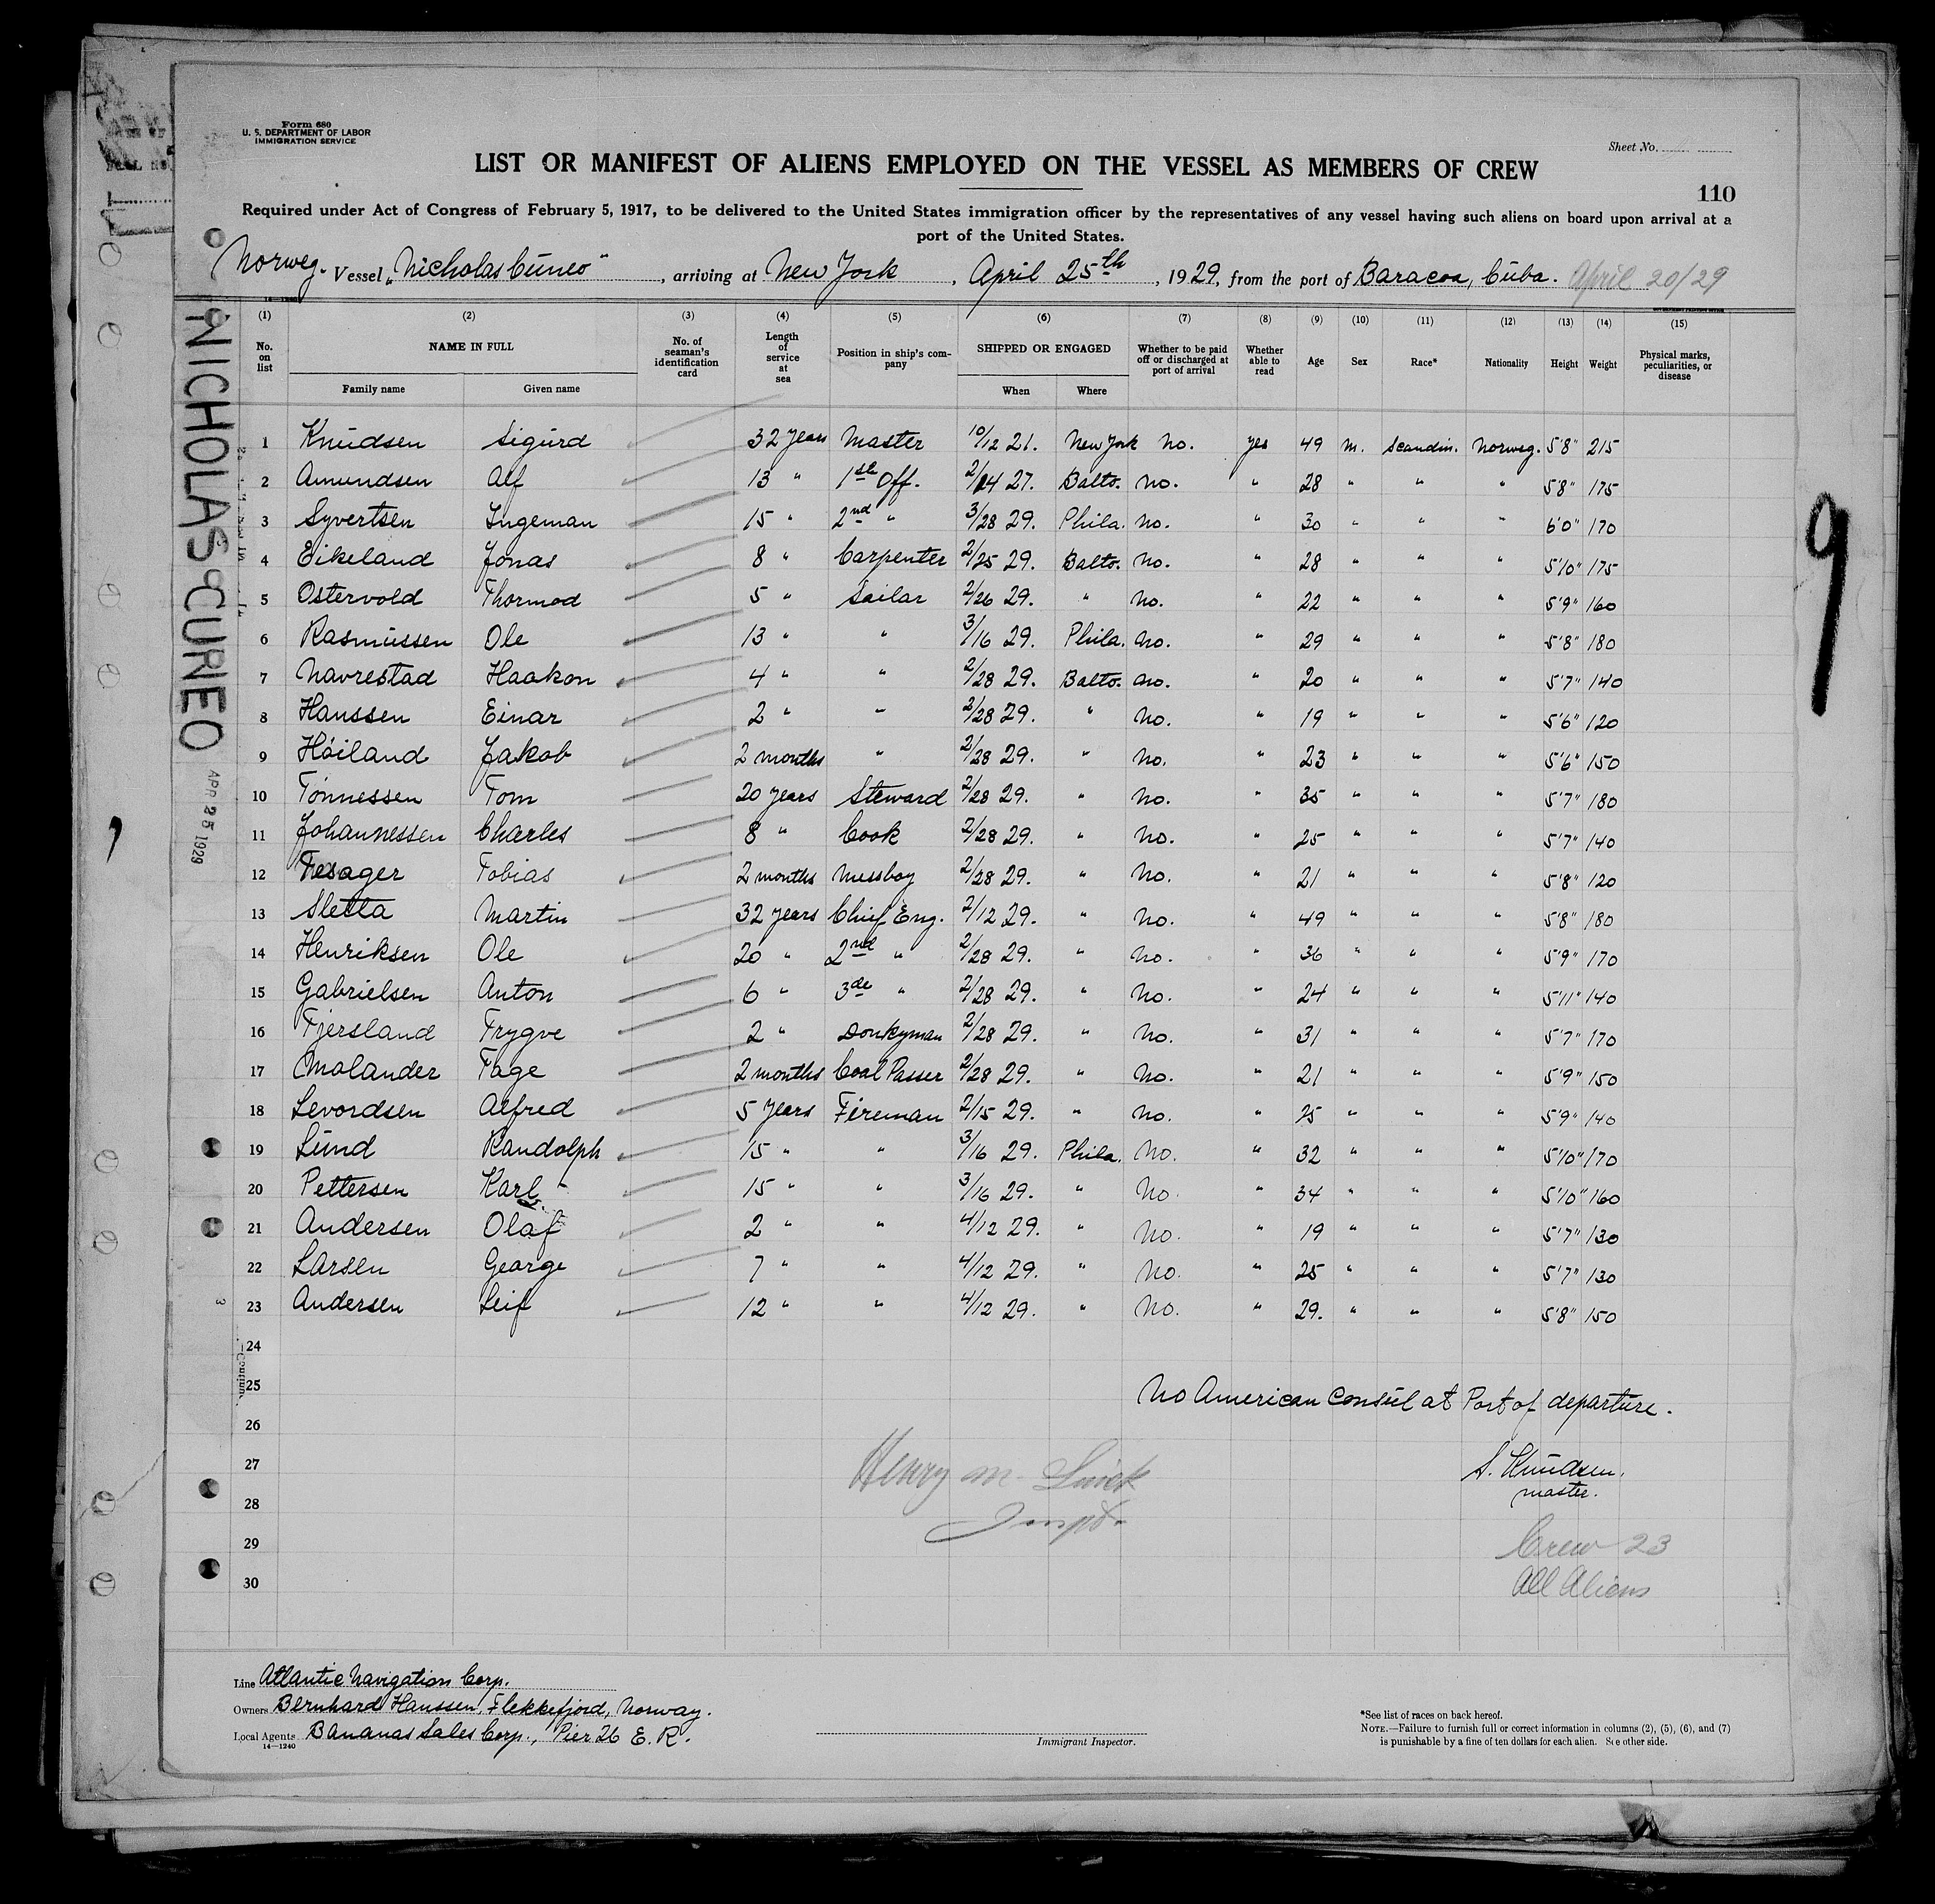 Form 680
U. S. DEPARTMENT OF LABOR
IMMIGRATION SERVICE
Sheet No.
LIST OR MANIFEST OF ALIENS EMPLOYED ON THE VESSEL AS MEMBERS OF CREW
110
Required under Act of Congress of February 5, 1917, to be delivered to the United States immigration officer by the representatives of any vessel having such aliens on board upon arrival at a
port of the United States.
Norweg. Vessel „Nicholas Cúneo", arriving at New York, April 25th, 1929, from the port of Baracoa, Cuba. April 20/29
(1) (2) (3) (4) (5) (6) (7) (8) (9) (10) (11) (12) (13) (14) (15)
No. on list NAME IN FULL No. of seaman's identification card Length of service at sea Position in ship's company SHIPPED OR ENGAGED Whether to be paid off or discharged at port of arrival Whether able to read Age Sex Race* Nationality Height Weight Physical marks, peculiarities, or disease
Family name Given name When Where
1 Knudsen Sigurd 32 years Master 10/12 21. New York No. yes 49 m. Scandin. Norweg. 5'8" 215
2 Amundsen Alf 13 " 1st Off. 2/14 27. Balto. No. " 28 " " " 5'8" 175
3 Syvertsen Ingeman 15 " 2nd " 3/28 29. Phila. No. " 30 " " " 6'0" 170
4 Eikeland Jonas 8 " Carpenter 2/25 29. Balto. No. " 28 " " " 5'10" 175
5 Ostervold Thormod 5 " Sailar 2/26 29. " No. " 22 " " " 5'9" 160
6 Rasmussen Ole 13 " " 3/16 29. Phila. No. " 29 " " " 5'8" 180
7 Navrestad Haakon 4 " " 2/28 29. Balto. No. " 20 " " " 5'7" 140
8 Hanssen Einar 2 " " 2/28 29. " No. " 19 " " " 5'6" 120
9 Höiland Jakob 2 months " 2/28 29. " No. " 23 " " " 5'6" 150
10 Tönnessen Tom 20 years Steward 2/28 29. " No. " 35 " " " 5'7" 180
11 Johannessen Charles 8 " Cook 2/28 29. " No. " 25 " " " 5'7" 140
12 Tobias 2 months Messboy 2/28 29. " No. " 21 " " " 5'8" 120
13 Sletta Martin 32 years Chief Eng. 2/12 29. " No. " 49 " " " 5'8" 180
14 Henriksen Ole 20 " 2nd " 2/28 29. " No. " 36 " " " 5'9" 170
15 Gabrielsen Anton 6 " 3de " 2/28 29. " No. " 24 " " " 5'11" 140
16 Tjersland Trygve 2 " Donkyman 2/28 29. " No. " 31 " " " 5'7" 170
17 Molander Tage 2 months Coal Passer 2/28 29. " No. " 21 " " " 5'9" 150
18 Levordsen Alfred 5 years Fireman 2/15 29. " No. " 25 " " " 5'9" 140
19 Lund Randolph 15 " " 3/16 29. Phila. No. " 32 " " " 5'10" 170
20 Pettersen Karl 15 " " 3/16 29. " No. " 34 " " " 5'10" 160
21 Andersen Olaf 2 " " 4/12 29. " No. " 19 " " " 5'7" 130
22 Larsen George 7 " " 4/12 29. " No. " 25 " " " 5'7" 130
23 Andersen Leif 12 " " 4/12 29. " No. " 29. " " " 5'8" 150
24
25 No American Consul at Port of departure.
26
27 Henry M. S. Knudsen.
28 Inspt. master.
29 Crew 23
30 All Aliens
Line Atlantic Navigation Corp.
Owners Bernhard Hanssen, Flekkefjord, Norway.
Local Agents Bananas Sales Corp., Pier 26 E. R.
14—1240
Immigrant Inspector.
*See list of races on back hereof.
NOTE.—Failure to furnish full or correct information in columns (2), (5), (6), and (7)
is punishable by a fine of ten dollars for each alien. See other side.
NICHOLAS CUNEO
APR 25 1929
9